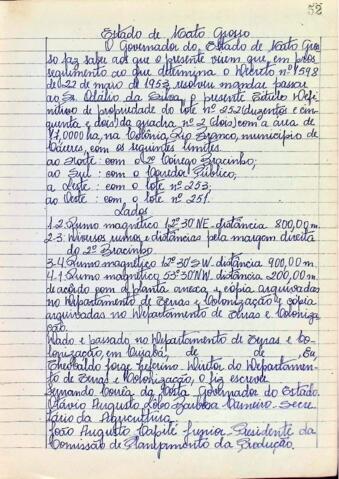 58
Estado de Mato Grosso
O Governador do Estado de Mato Gros
so faz saber aos que o presente virem que, em pros
seguimento ao que determina o Decreto nº 1598
de 22 de maio de 1953, resolveu mandar passar
ao Sr. da Silva, o presente Titulo Defi
nitivo de propriedade do lote nº 252 (duzentos e cin
quenta e dois) da quadra nº 2 (dois) com a área de
17,0000 ha, na Colônia Rio Branco, município de
Cáceres, com os seguintes limites:
ao Norte: com o 2º Córrego Bracinho;
ao Sul: com o Corredor Público;
a Leste: com o lote nº 253;
ao Oeste: com o lote nº 251.
Lados
1-2-Rumo magnético 12º30'NE-distância 800,00m.
2-3-Diversos rumos e distâncias pela margem direita
do 2º Bracinho
3-4-Rumo magnético 12º30'SW-distância 900,00m.
4-1-Rumo magnético 53º30'NW-distância 200,00m.
de acôrdo com a planta anexa, e cópia arquivadas
no Departamento de Terras e Colonização e cópia
arquivadas no Departamento de Terras e Coloniza
ção.
Dado e passado no Departamento de Terras e Co-
lonização, em Cuiabá, de de , Eu,
Theobaldo Jorge Seferino-Diretor do Departamen-
to de Terras e Colonização, o fiz escrever
Fernando Corrêa da Costa Governador do Estado.
Otávio Augusto Lôbo Barbosa Carneiro-Secre-
tário da Agricultura
João Augusto Capilé Junior-Presidente da
Comissão de Planejamento da Produção.